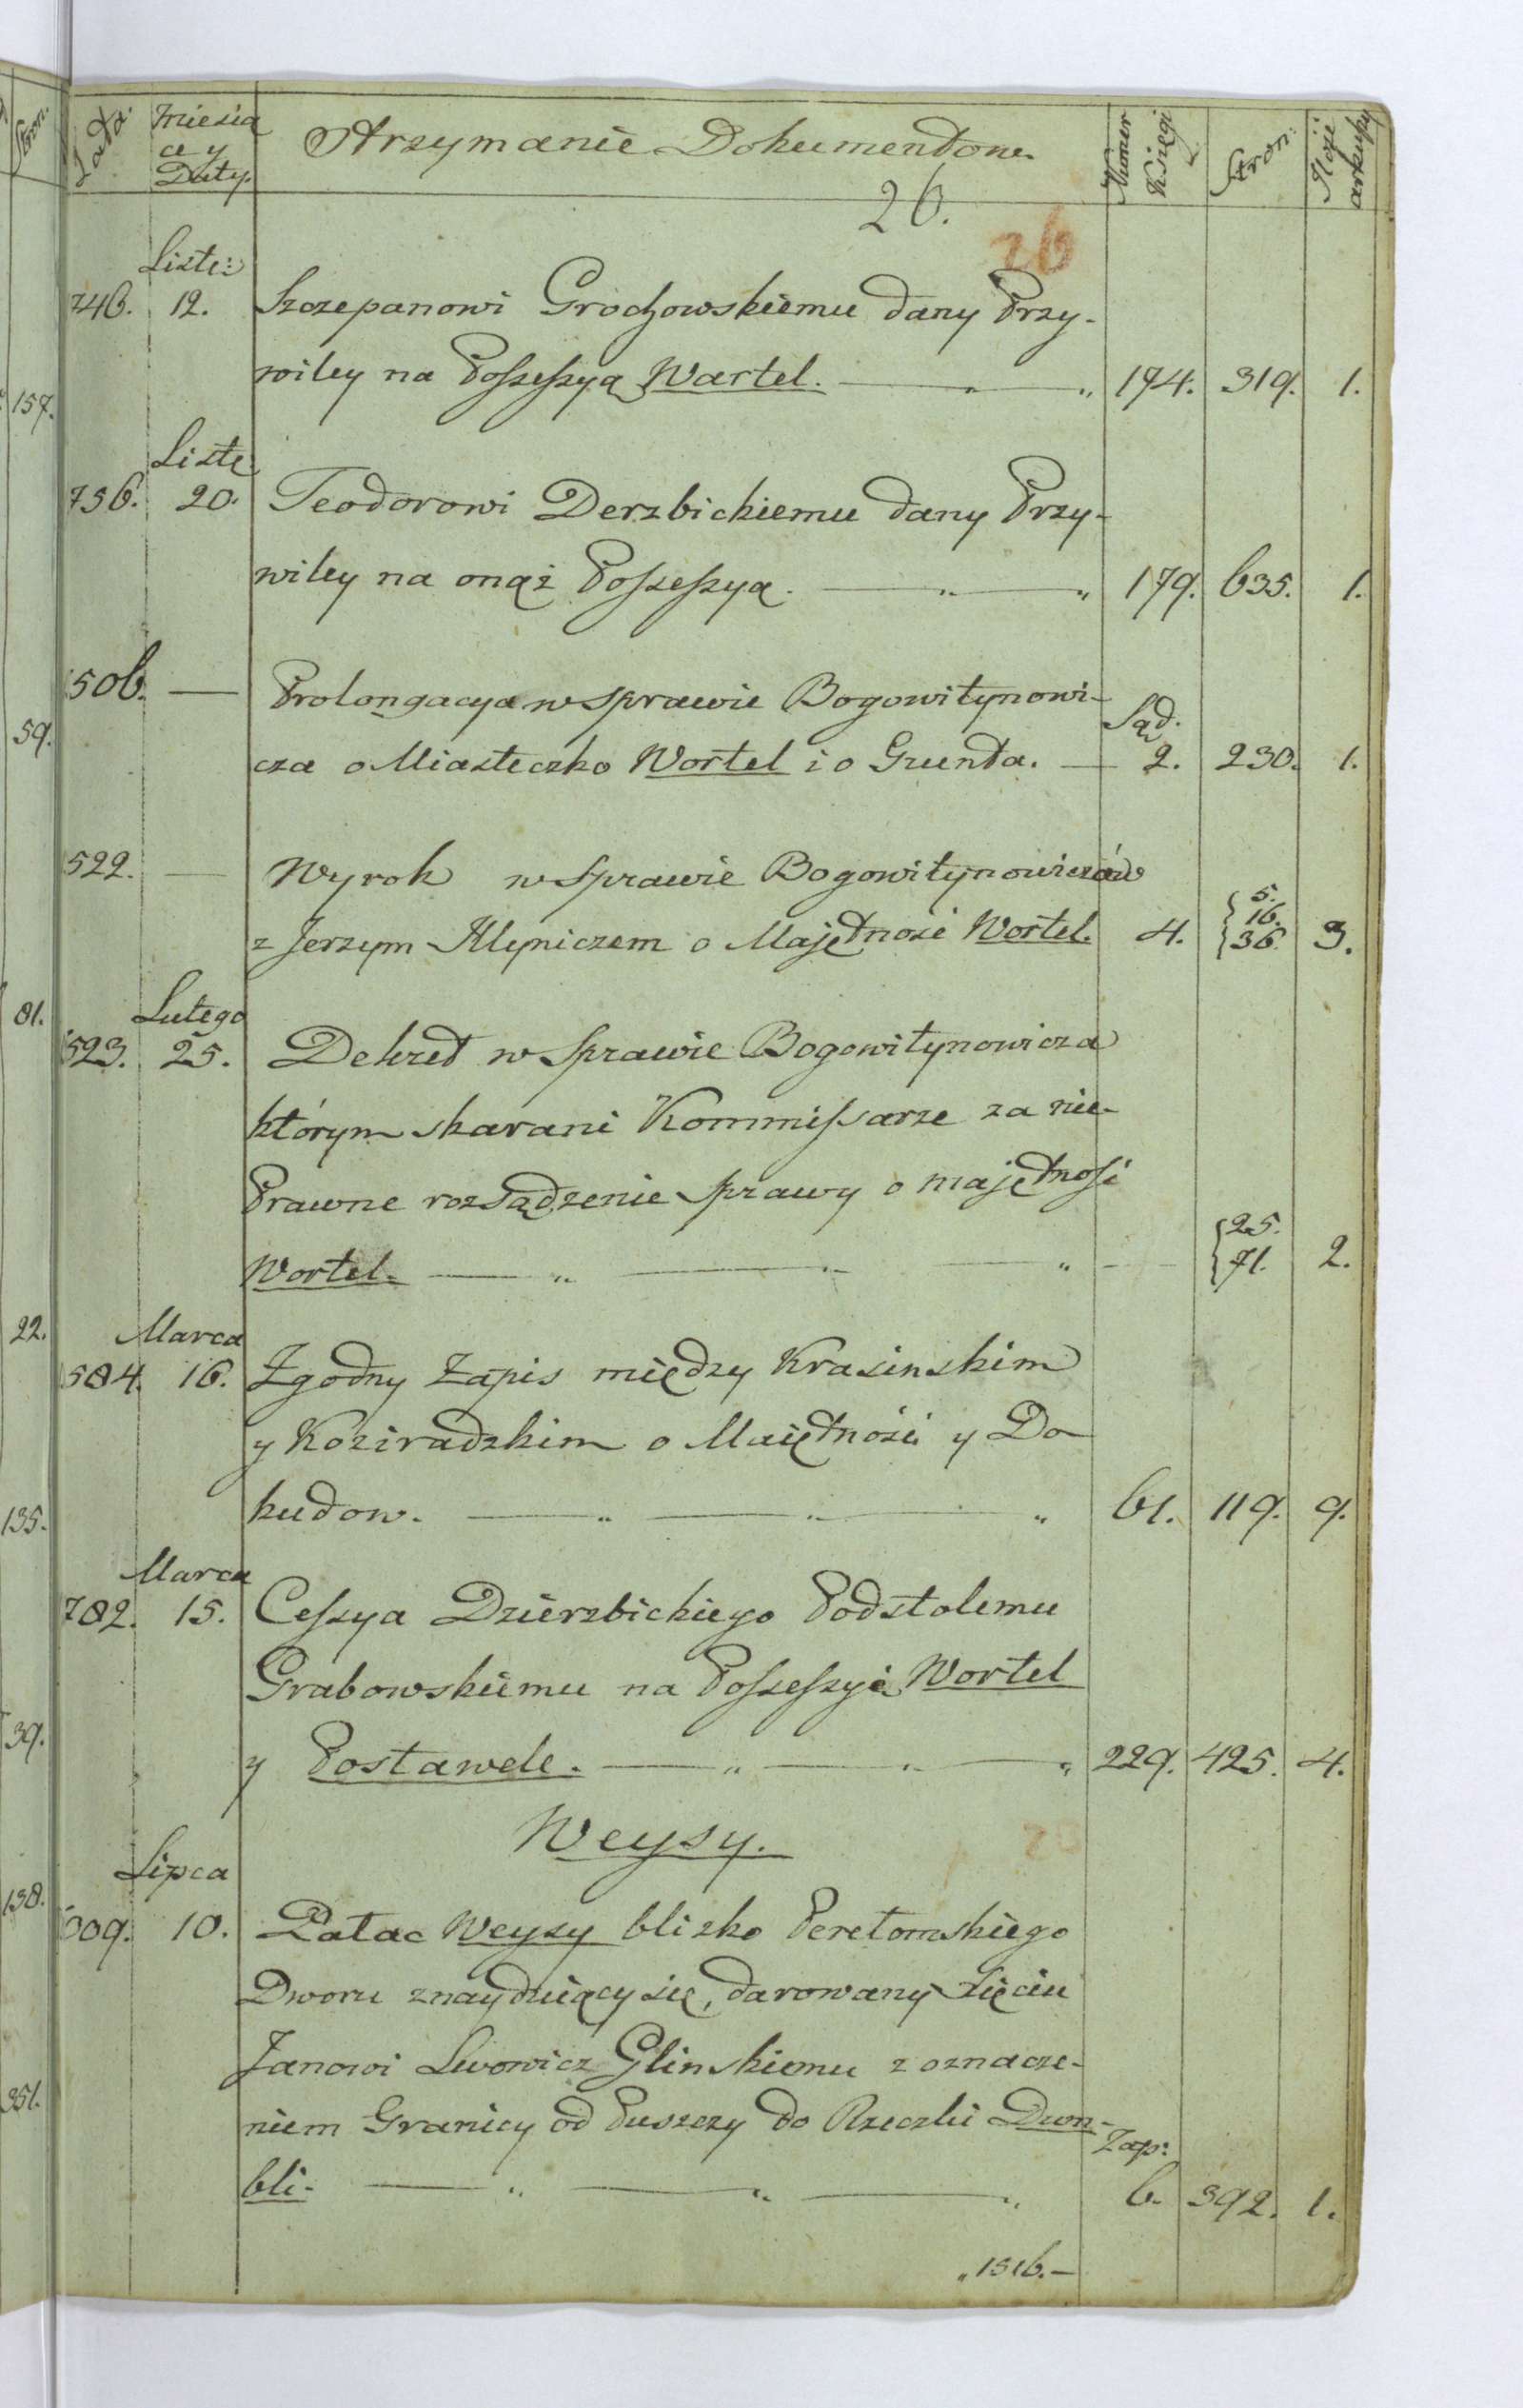 Lata. Miesiąca y Daty. Otrzymanie Dokumentow. Numer Księgi Stron: Ilość arkuszy
26.
26
Liste:
746. 12. Szczepanowi Grochowskiemu dany Przy-
wiley na Possessyą Wartel. 174. 319. 1.
157.
Liste
756. 20. Teodorowi Derzbickiemu dany Przy-
wiley na onąż Possessyą. 179. 635. 1.
506. — Prolongacya w sprawie Bogowitynowi-
Sąd.
59.
cza o Miasteczko Wortel i o Grunta. — 2. 230. 1.
522. — Wyrok w sprawie Bogowitynowiczów
z Jerzym Illyniczem o Majętność Wortel. 4. { 5. 16. 36. 3.
81.
Lutego
523. 25. Dekret w Sprawie Bogowitynowicza
którym skarani Kommissarze za nie-
Prawne rozsądzenie sprawy o majętność
Wortel. — { 25. 71. 2.
22.
Marca
584. 16. Zgodny Zapis między Krasinskim
y Koziradzkim o Maiętność y Do
kudow. — 61. 119. 9.
135.
Marca
782. 15. Cessya Dzierzbickiego Podstolemu
Grabowskiemu na Possessyą Wortel
39.
y Postawele. — 229. 425. 4.
Weysy.
Lipca
138.
509. 10. Pałac Weysy blisko Perełomskiego
Dworu znayduiący się, darowany Xięciu
Janowi Lwowicz Glinskiemu z oznacze-
351.
niem Granicy od Puszczy do Rzeczki Dwu-
Zap:
bli. — 6. 392. 1.
„1516.—